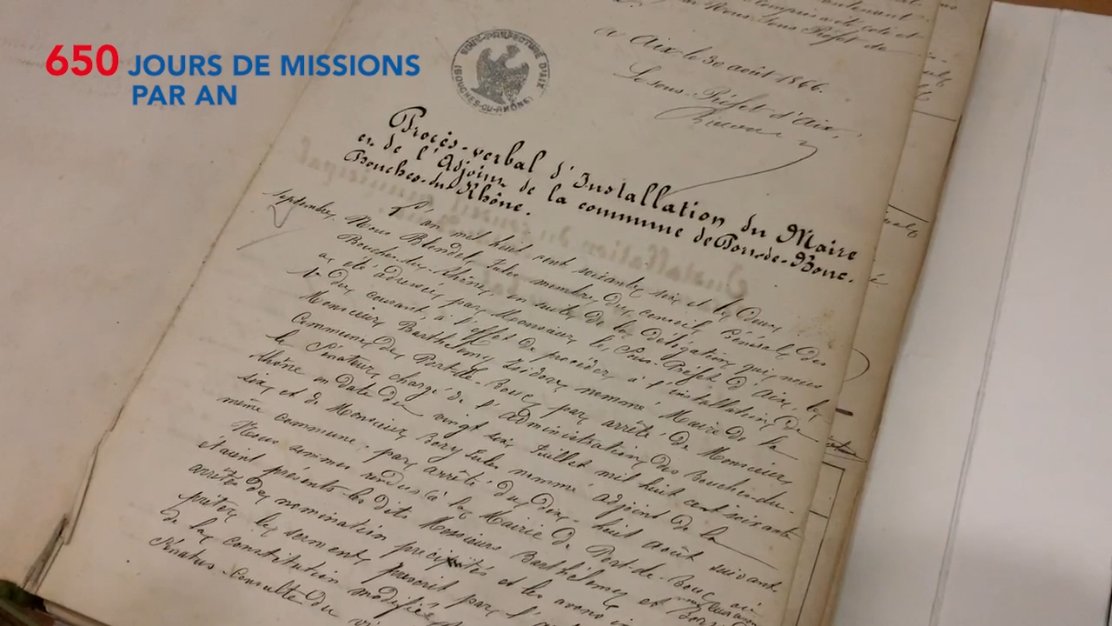 650 JOURS DE MISSIONS
PAR AN
SOUS-PRÉFECTURE D'AIX
(BOUCHES-DU-RHÔNE)
a Aix le 30 août 1866.
Le sous-Préfet d'Aix,
Procès-verbal d'Installation du Maire
et de l'Adjoint de la commune de Port-de-Bouc.
Bouches-du-Rhône.
L'an mil huit cent soixante six et le deux
septembre, Nous Blondel Jules membre du conseil Général des
Bouches-du-Rhône en suite de la délégation qui nous
a été adressée par Monsieur le Sous Préfet d'Aix, le
1er du courant à l'effet de procéder à l'installation de
Monsieur Barthélemy Isidore nommé Maire de la
Commune de Port-de-Bouc par arrêté de Monsieur
le Sénateur chargé de l'administration des Bouches-du-
Rhône en date du vingt six Juillet mil huit cent soixante
six et de Monsieur Bory Jules nommé adjoint de la
même commune, par arrêté du dix-huit août suivant
Nous sommes rendus à la Mairie de Port-de-Bouc où
étaient présents les dits Messieurs Barthélemy et Bory
arrêtés de nomination précités et les avons
prêter le serment prescrit par
de la constitution modifiée
Sénatus-Consulte du